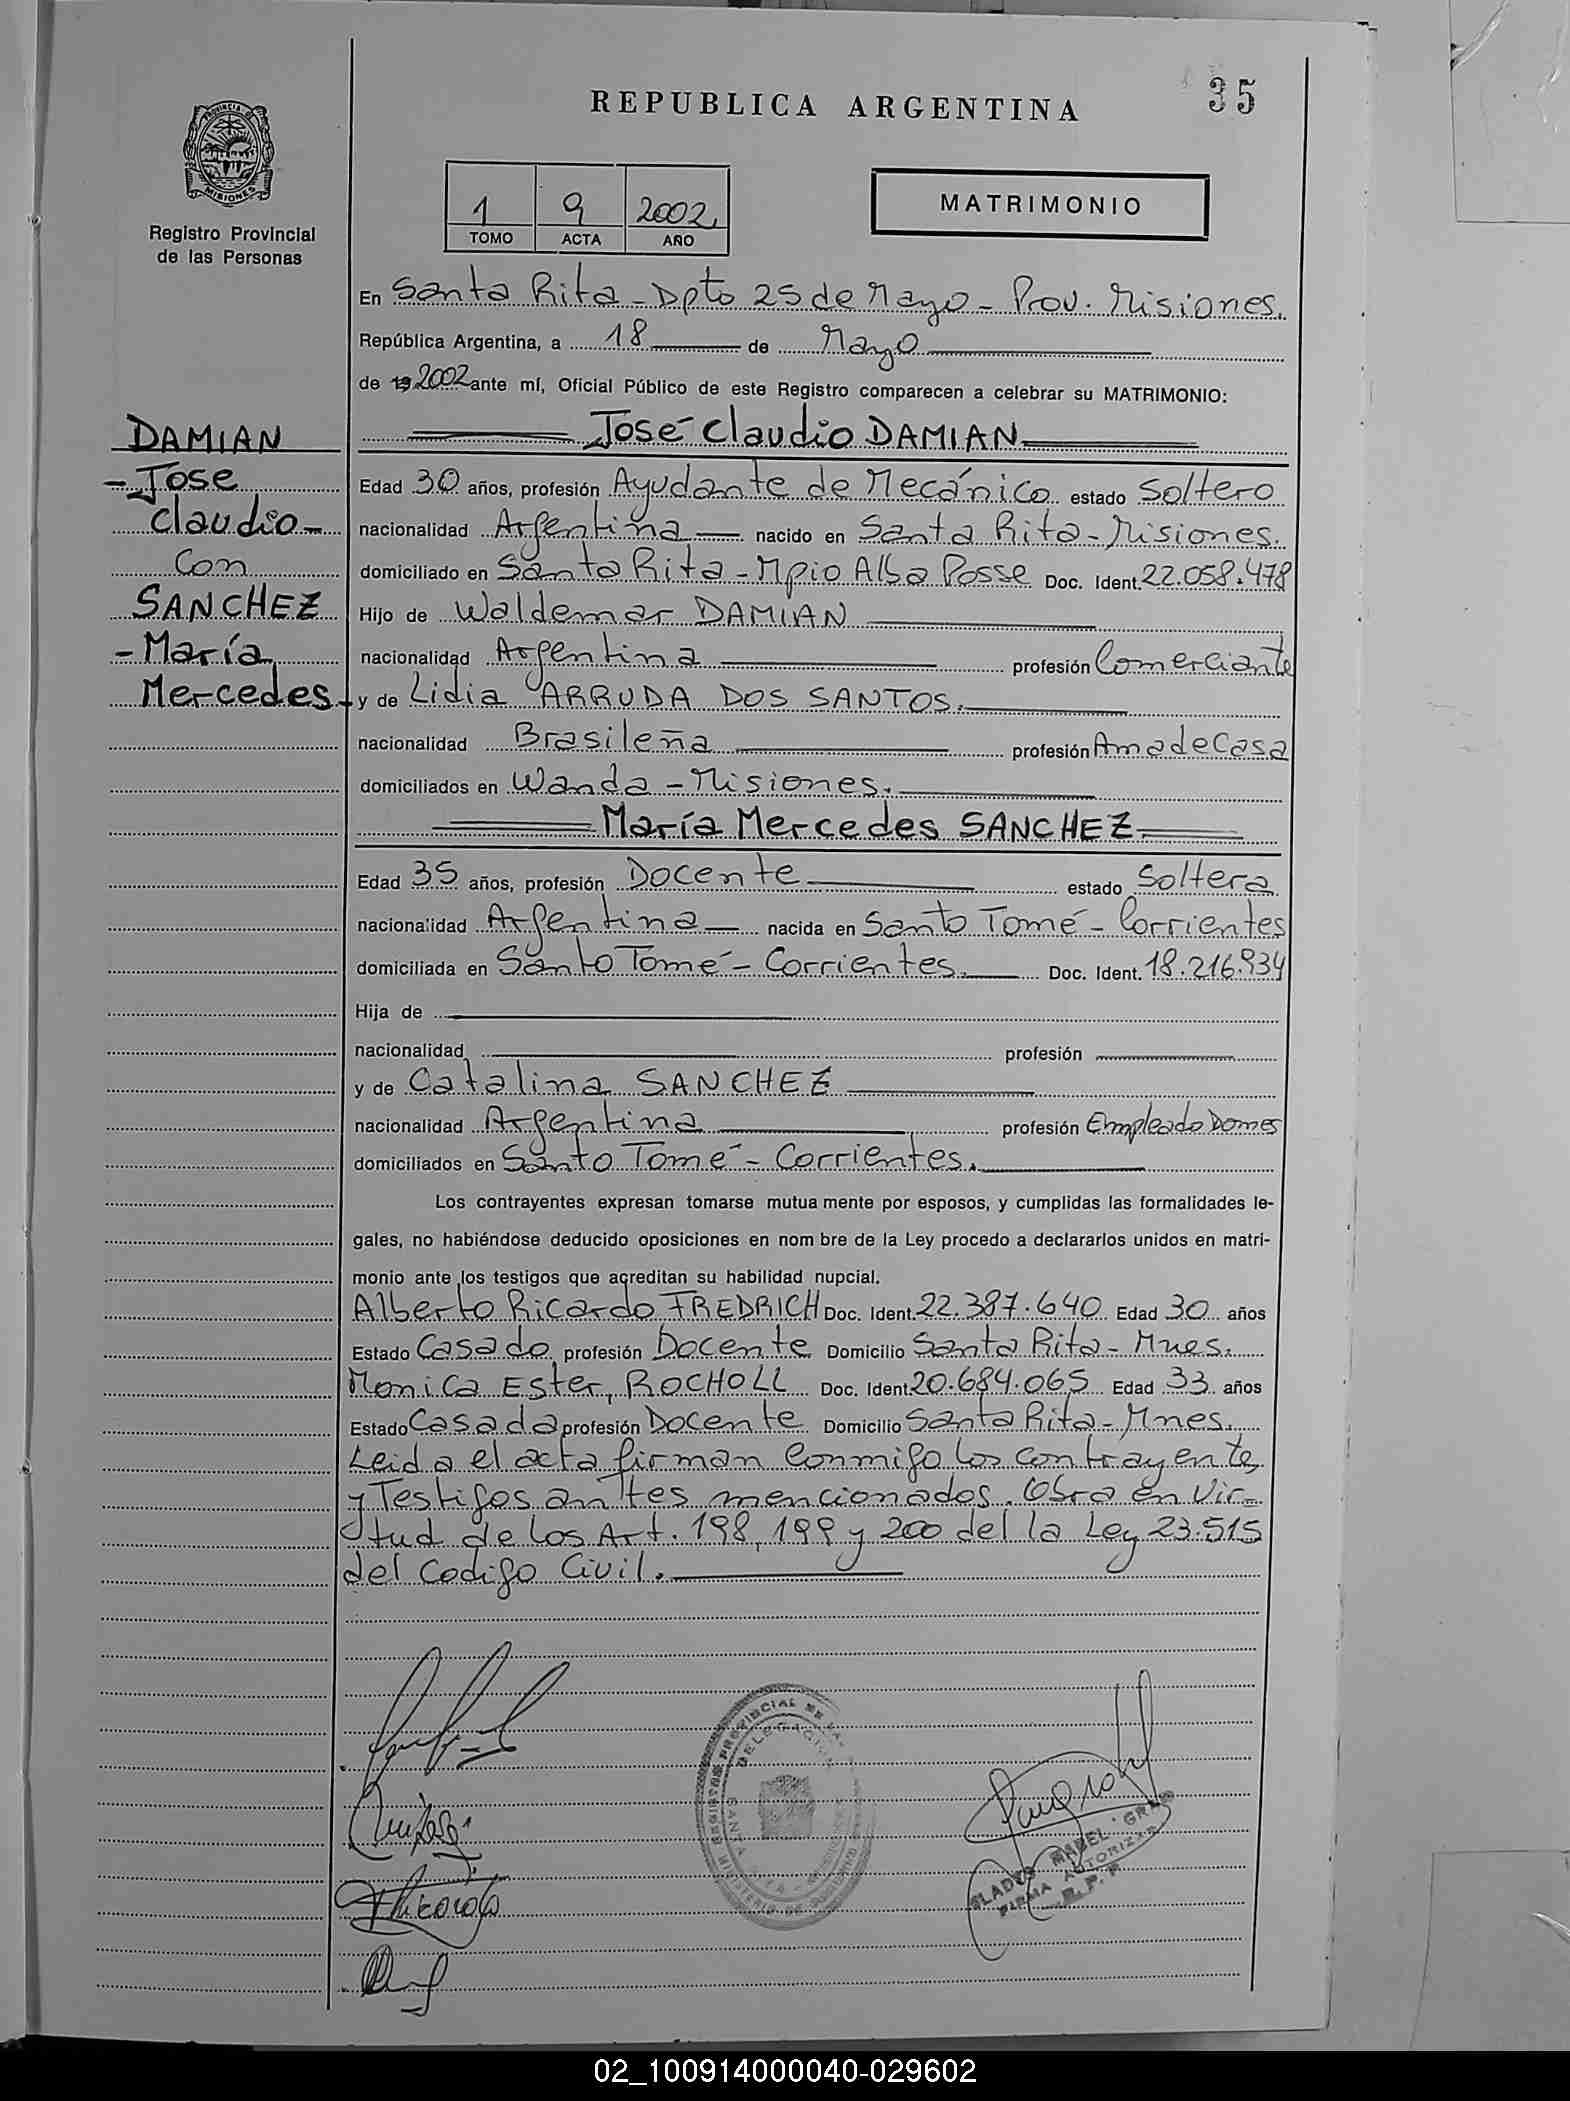 REPUBLICA ARGENTINA
35
PROVINCIA DE MISIONES
Registro Provincial
de las Personas
1 9 2002
TOMO ACTA AÑO
MATRIMONIO
En Santa Rita - Dpto 25 de Mayo - Prov. Misiones.
República Argentina, a 18 de Mayo
de 19 2002 ante mí, Oficial Público de este Registro comparecen a celebrar su MATRIMONIO:
DAMIAN
- Jose
Claudio -
Con
SANCHEZ
- María
Mercedes -
José Claudio DAMIAN
Edad 30 años, profesión Ayudante de Mecánico estado Soltero
nacionalidad Argentina nacido en Santa Rita - Misiones.
domiciliado en Santa Rita - Mpio Alba Posse Doc. Ident. 22.058.478
Hijo de Waldemar DAMIAN
nacionalidad Argentina profesión Comerciante
y de Lidia ARRUDA DOS SANTOS.
nacionalidad Brasileña profesión Ama de Casa
domiciliados en Wanda - Misiones.
María Mercedes SANCHEZ
Edad 35 años, profesión Docente estado Soltera
nacionalidad Argentina nacida en Santo Tomé - Corrientes
domiciliada en Santo Tomé - Corrientes. Doc. Ident. 18.216.934
Hija de
nacionalidad profesión
y de Catalina SANCHEZ
nacionalidad Argentina profesión Empleada Domes
domiciliados en Santo Tomé - Corrientes.
Los contrayentes expresan tomarse mutua mente por esposos, y cumplidas las formalidades le-
gales, no habiéndose deducido oposiciones en nom bre de la Ley procedo a declararlos unidos en matri-
monio ante los testigos que acreditan su habilidad nupcial.
Alberto Ricardo FREDRICH Doc. Ident. 22.387.640 Edad 30 años
Estado Casado profesión Docente Domicilio Santa Rita - Mnes.
Monica Ester, ROCHOLL Doc. Ident 20.684.065 Edad 33 años
Estado Casada profesión Docente Domicilio Santa Rita - Mnes.
Leida el acta firman conmigo los contrayente,
y Testigos antes mencionados. Obra en Vir-
tud de los Art. 198, 199 y 200 del la Ley 23.515
del Codigo Civil.
REGISTRO PROVINCIAL DE LA
DELEGACION
SANTA RITA
GLADYS MABEL
FIRMA AUTORIZA
R.P.P
02_100914000040-029602